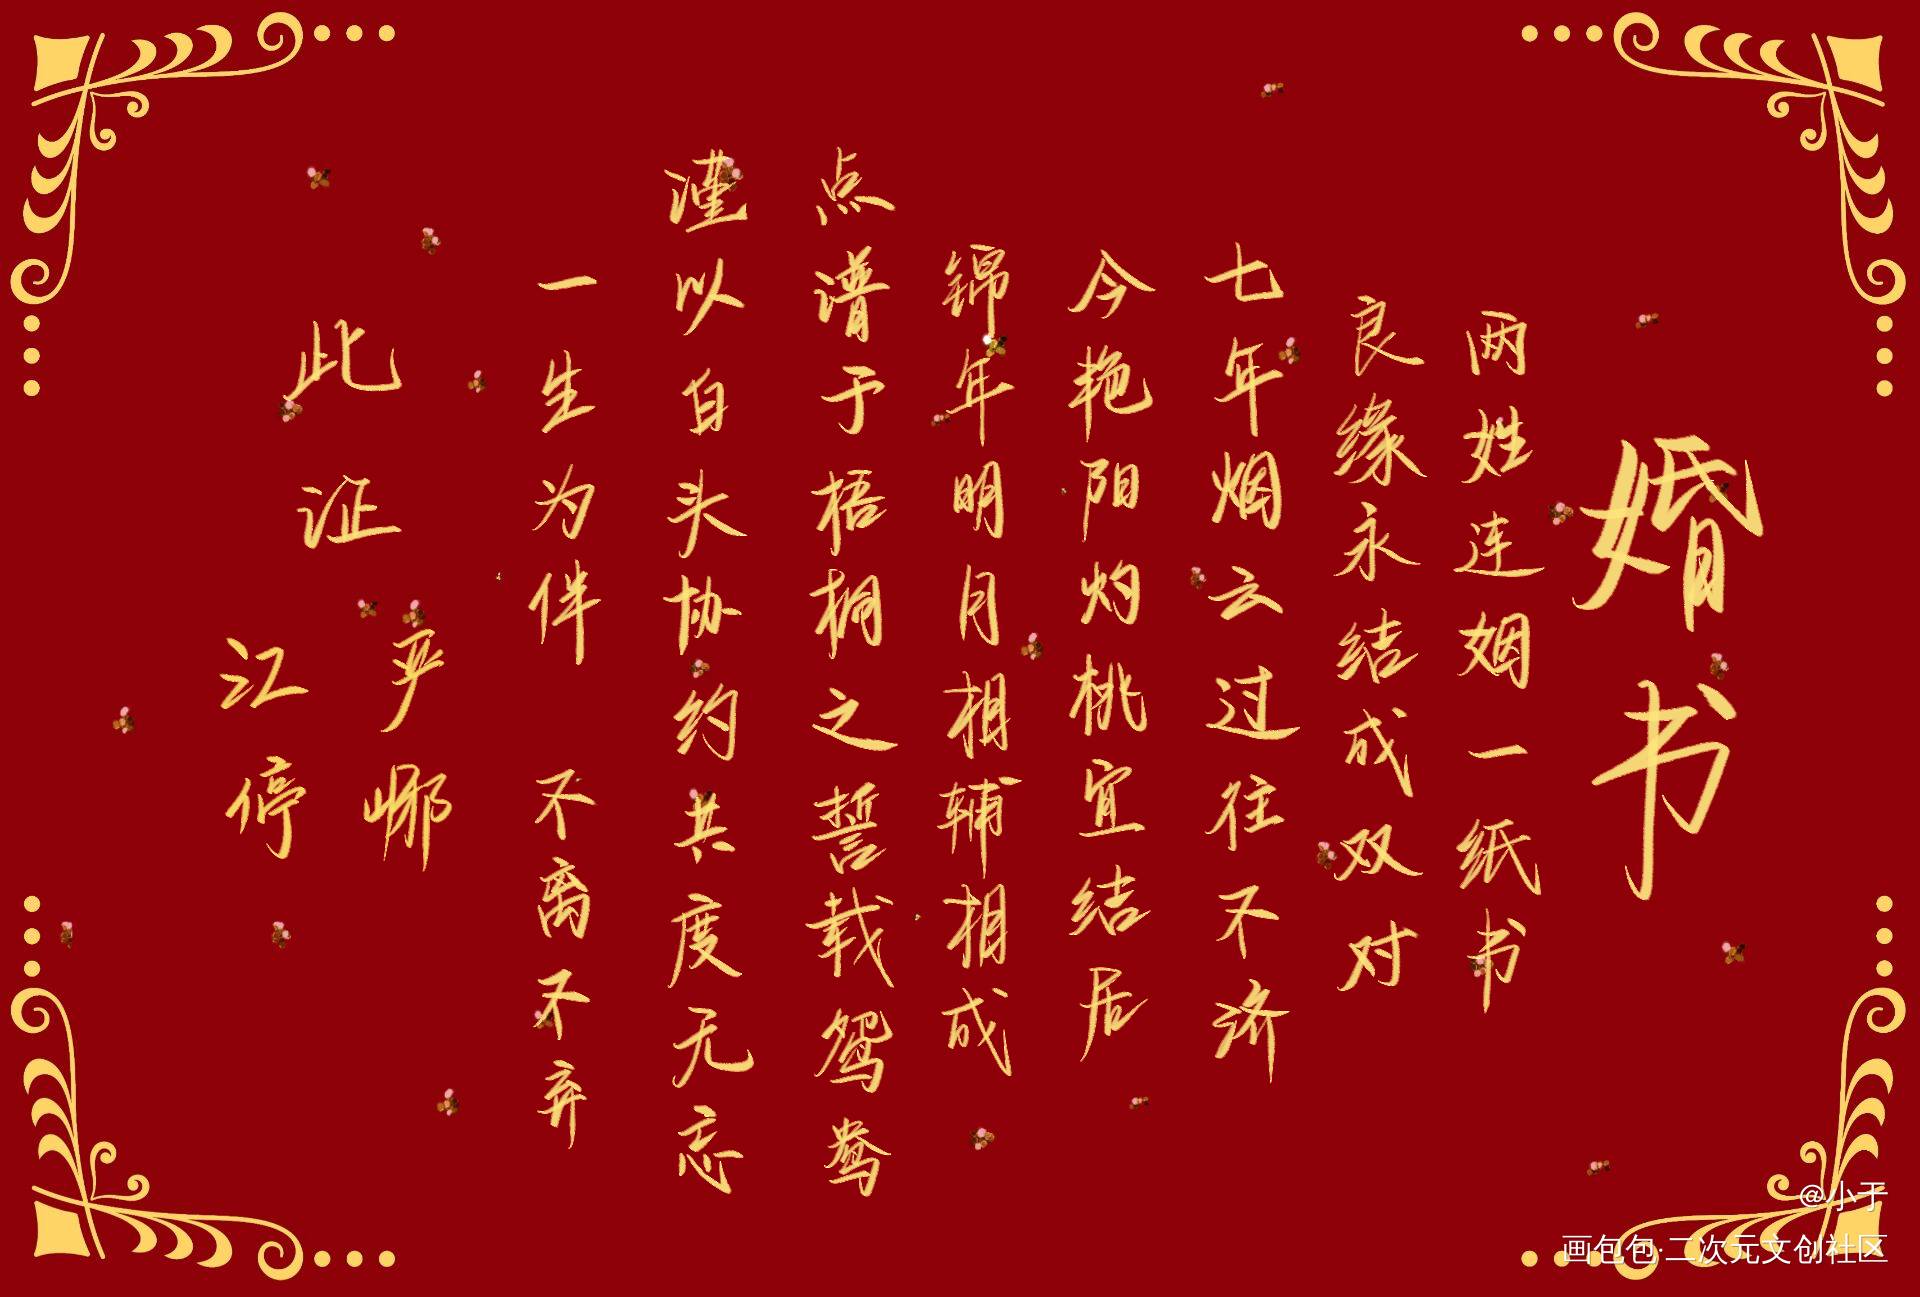 婚书
两姓连姻一纸书
良缘永结成双对
七年烟云过往不济
今艳阳灼桃宜结居
锦年明月相辅相成
点谱于梧桐之誓载鸳鸯
谨以白头协约共度无忘
一生为伴 不离不弃
此证
严峫
江停
@小于
画包包·二次元文创社区